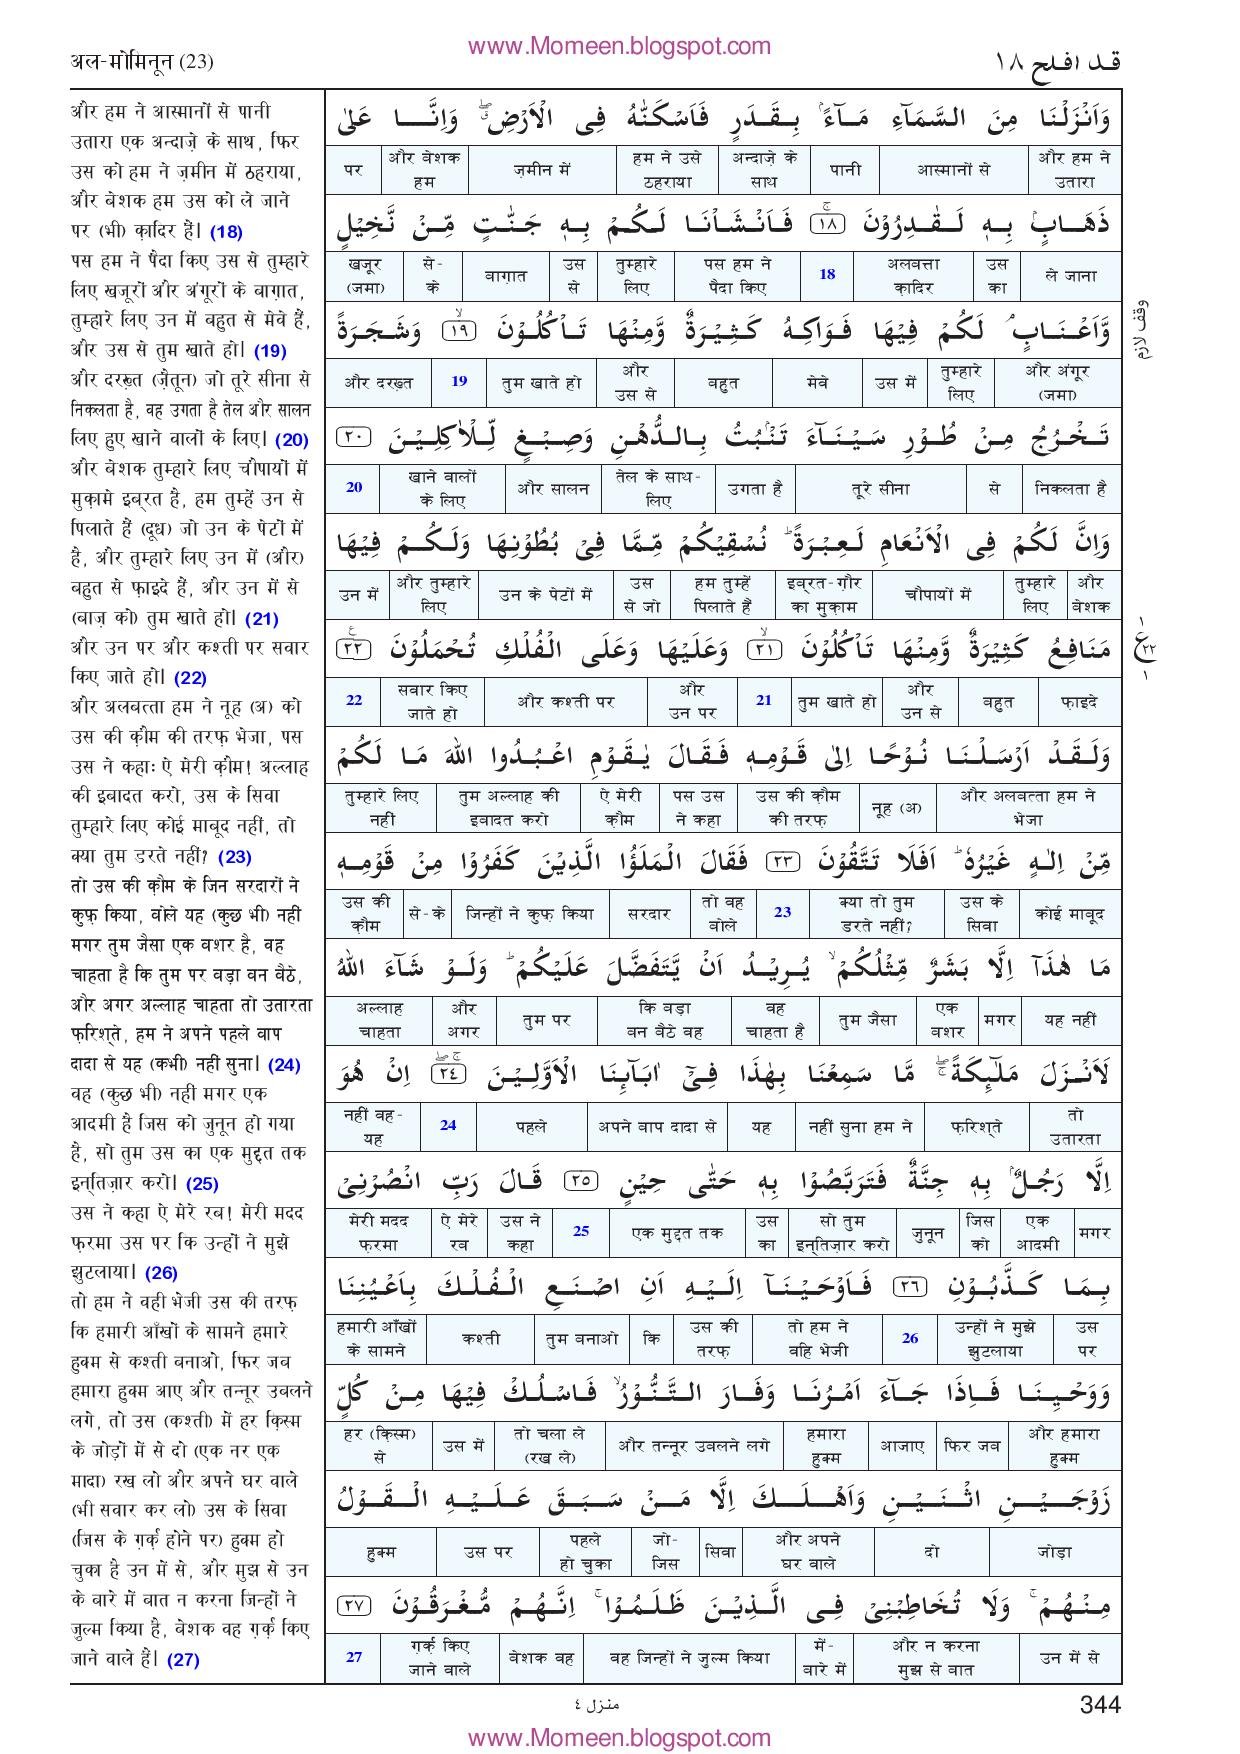 www.Momeen.blogspot.com
अल-मोमिनून (23)
قد افلح ١٨
और हम ने आस्मानों से पानी
उतारा एक अन्दाज़े के साथ, फिर
उस को हम ने ज़मीन में ठहराया,
और बेशक हम उस को ले जाने
पर (भी) क़ादिर हैं। (18)
पस हम ने पैदा किए उस से तुम्हारे
लिए खजूरों और अंगूरों के बाग़ात,
तुम्हारे लिए उन में बहुत से मेवे हैं,
और उस से तुम खाते हो। (19)
और दरख़्त (ज़ैतून) जो तूरे सीना से
निकलता है, वह उगता है तेल और सालन
लिए हुए खाने वालों के लिए। (20)
और बेशक तुम्हारे लिए चौपायों में
मुक़ामे इब्रत है, हम तुम्हें उन से
पिलाते हैं (दूध) जो उन के पेटों में
है, और तुम्हारे लिए उन में (और)
बहुत से फ़ाइदे हैं, और उन में से
(बाज़ को) तुम खाते हो। (21)
और उन पर और कश्ती पर सवार
किए जाते हो। (22)
और अलबत्ता हम ने नूह (अ) को
उस की क़ौम की तरफ़ भेजा, पस
उस ने कहाः ऐ मेरी क़ौम! अल्लाह
की इबादत करो, उस के सिवा
तुम्हारे लिए कोई माबूद नहीं, तो
क्या तुम डरते नहीं? (23)
तो उस की क़ौम के जिन सरदारों ने
कुफ़ किया, बोले यह (कुछ भी) नहीं
मगर तुम जैसा एक बशर है, वह
चाहता है कि तुम पर बड़ा बन बैठे,
और अगर अल्लाह चाहता तो उतारता
फ़रिश्ते, हम ने अपने पहले बाप
दादा से यह (कभी) नहीं सुना। (24)
वह (कुछ भी) नहीं मगर एक
आदमी है जिस को जुनून हो गया
है, सो तुम उस का एक मुद्दत तक
इन्तिज़ार करो। (25)
उस ने कहा ऐ मेरे रब! मेरी मदद
फ़रमा उस पर कि उन्हों ने मुझे
झुटलाया। (26)
तो हम ने वही भेजी उस की तरफ़
कि हमारी आँखों के सामने हमारे
हुक्म से कश्ती बनाओ, फिर जब
हमारा हुक्म आए और तन्नूर उबलने
लगे, तो उस (कश्ती) में हर क़िस्म
के जोड़ों में से दो (एक नर एक
मादा) रख लो और अपने घर वाले
(भी सवार कर लो) उस के सिवा
(जिस के ग़र्क़ होने पर) हुक्म हो
चुका है उन में से, और मुझ से उन
के बारे में बात न करना जिन्हों ने
जुल्म किया है, बेशक वह ग़र्क़ किए
जाने वाले हैं। (27)
وَاَنۡزَلۡنَا مِنَ السَّمَآءِ مَآءًۢ بِقَدَرٍ فَاَسۡكَنّٰهُ فِى الۡاَرۡضِ ۖ وَاِنَّا عَلٰى
और हम ने उतारा आस्मानों से पानी अन्दाज़े के साथ हम ने उसे ठहराया ज़मीन में और बेशक हम पर
ذَهَابٍۢ بِهٖ لَقٰدِرُوۡنَ ۚ ١٨ فَاَنۡشَاۡنَا لَكُمۡ بِهٖ جَنّٰتٍ مِّنۡ نَّخِيۡلٍ
ले जाना उस का अलबत्ता क़ादिर 18 पस हम ने पैदा किए तुम्हारे लिए उस से बाग़ात से-के खजूर (जमा)
وَّاَعۡنَابٍ ۘ لَكُمۡ فِيۡهَا فَوَاكِهُ كَثِيۡرَةٌ وَّمِنۡهَا تَاۡكُلُوۡنَ ۙ ١٩ وَشَجَرَةً
وقف لازم
और अंगूर (जमा) तुम्हारे लिए उस में मेवे बहुत और उस से तुम खाते हो 19 और दरख़्त
تَخۡرُجُ مِنۡ طُوۡرِ سَيۡنَآءَ تَنۡۢبُتُ بِالدُّهۡنِ وَصِبۡغٍ لِّلۡاٰكِلِيۡنَ ٢٠
निकलता है से तूरे सीना उगता है तेल के साथ-लिए और सालन खाने वालों के लिए 20
وَاِنَّ لَكُمۡ فِى الۡاَنۡعَامِ لَعِبۡرَةً ؕ نُسۡقِيۡكُمۡ مِّمَّا فِىۡ بُطُوۡنِهَا وَلَكُمۡ فِيۡهَا
और बेशक तुम्हारे लिए चौपायों में इब्रत-ग़ौर का मुक़ाम हम तुम्हें पिलाते हैं उस से जो उन के पेटों में और तुम्हारे लिए उन में
مَنَافِعُ كَثِيۡرَةٌ وَّمِنۡهَا تَاۡكُلُوۡنَ ۙ ٢١ وَعَلَيۡهَا وَعَلَى الۡفُلۡكِ تُحۡمَلُوۡنَ ٢٢
١ ع ٢٢ ١
फ़ाइदे बहुत और उन से तुम खाते हो 21 और उन पर और कश्ती पर सवार किए जाते हो 22
وَلَقَدۡ اَرۡسَلۡنَا نُوۡحًا اِلٰى قَوۡمِهٖ فَقَالَ يٰقَوۡمِ اعۡبُدُوا اللّٰهَ مَا لَكُمۡ
और अलबत्ता हम ने भेजा नूह (अ) उस की क़ौम की तरफ़ पस उस ने कहा ऐ मेरी क़ौम तुम अल्लाह की इबादत करो तुम्हारे लिए नहीं
مِّنۡ اِلٰهٍ غَيۡرُهٗ ؕ اَفَلَا تَتَّقُوۡنَ ٢٣ فَقَالَ الۡمَلَؤُا الَّذِيۡنَ كَفَرُوۡا مِنۡ قَوۡمِهٖ
कोई माबूद उस के सिवा क्या तो तुम डरते नहीं? 23 तो वह बोले सरदार जिन्हों ने कुफ़ किया से-के उस की क़ौम
مَا هٰذَاۤ اِلَّا بَشَرٌ مِّثۡلُكُمۡ ۙ يُرِيۡدُ اَنۡ يَّتَفَضَّلَ عَلَيۡكُمۡ ؕ وَلَوۡ شَآءَ اللّٰهُ
यह नहीं मगर एक बशर तुम जैसा वह चाहता है कि बड़ा बन बैठे वह तुम पर और अगर अल्लाह चाहता
لَاَنۡزَلَ مَلٰٓئِكَةً ۖ مَّا سَمِعۡنَا بِهٰذَا فِىۡۤ اٰبَآئِنَا الۡاَوَّلِيۡنَ ٢٤ اِنۡ هُوَ
तो उतारता फ़रिश्ते नहीं सुना हम ने यह अपने बाप दादा से पहले 24 नहीं वह-यह
اِلَّا رَجُلٌۢ بِهٖ جِنَّةٌ فَتَرَبَّصُوۡا بِهٖ حَتّٰى حِيۡنٍ ٢٥ قَالَ رَبِّ انۡصُرۡنِىۡ
मगर एक आदमी जिस को जुनून सो तुम इन्तिज़ार करो उस का एक मुद्दत तक 25 उस ने कहा ऐ मेरे रब मेरी मदद फ़रमा
بِمَا كَذَّبُوۡنِ ٢٦ فَاَوۡحَيۡنَاۤ اِلَيۡهِ اَنِ اصۡنَعِ الۡفُلۡكَ بِاَعۡيُنِنَا
उस पर उन्हों ने मुझे झुटलाया 26 तो हम ने वहि भेजी उस की तरफ़ कि तुम बनाओ कश्ती हमारी आँखों के सामने
وَوَحۡيِنَا فَاِذَا جَآءَ اَمۡرُنَا وَفَارَ التَّنُّوۡرُ ۙ فَاسۡلُكۡ فِيۡهَا مِنۡ كُلٍّ
और हमारा हुक्म फिर जब आजाए हमारा हुक्म और तन्नूर उबलने लगे तो चला ले (रख ले) उस में हर (क़िस्म) से
زَوۡجَيۡنِ اثۡنَيۡنِ وَاَهۡلَكَ اِلَّا مَنۡ سَبَقَ عَلَيۡهِ الۡقَوۡلُ
जोड़ा दो और अपने घर वाले सिवा जो-जिस पहले हो चुका उस पर हुक्म
مِنۡهُمۡ ۚ وَلَا تُخَاطِبۡنِىۡ فِى الَّذِيۡنَ ظَلَمُوۡا ۚ اِنَّهُمۡ مُّغۡرَقُوۡنَ ٢٧
उन में से और न करना मुझ से बात में-बारे में वह जिन्हों ने जुल्म किया बेशक वह ग़र्क़ किए जाने वाले 27
منزل ٤
344
www.Momeen.blogspot.com